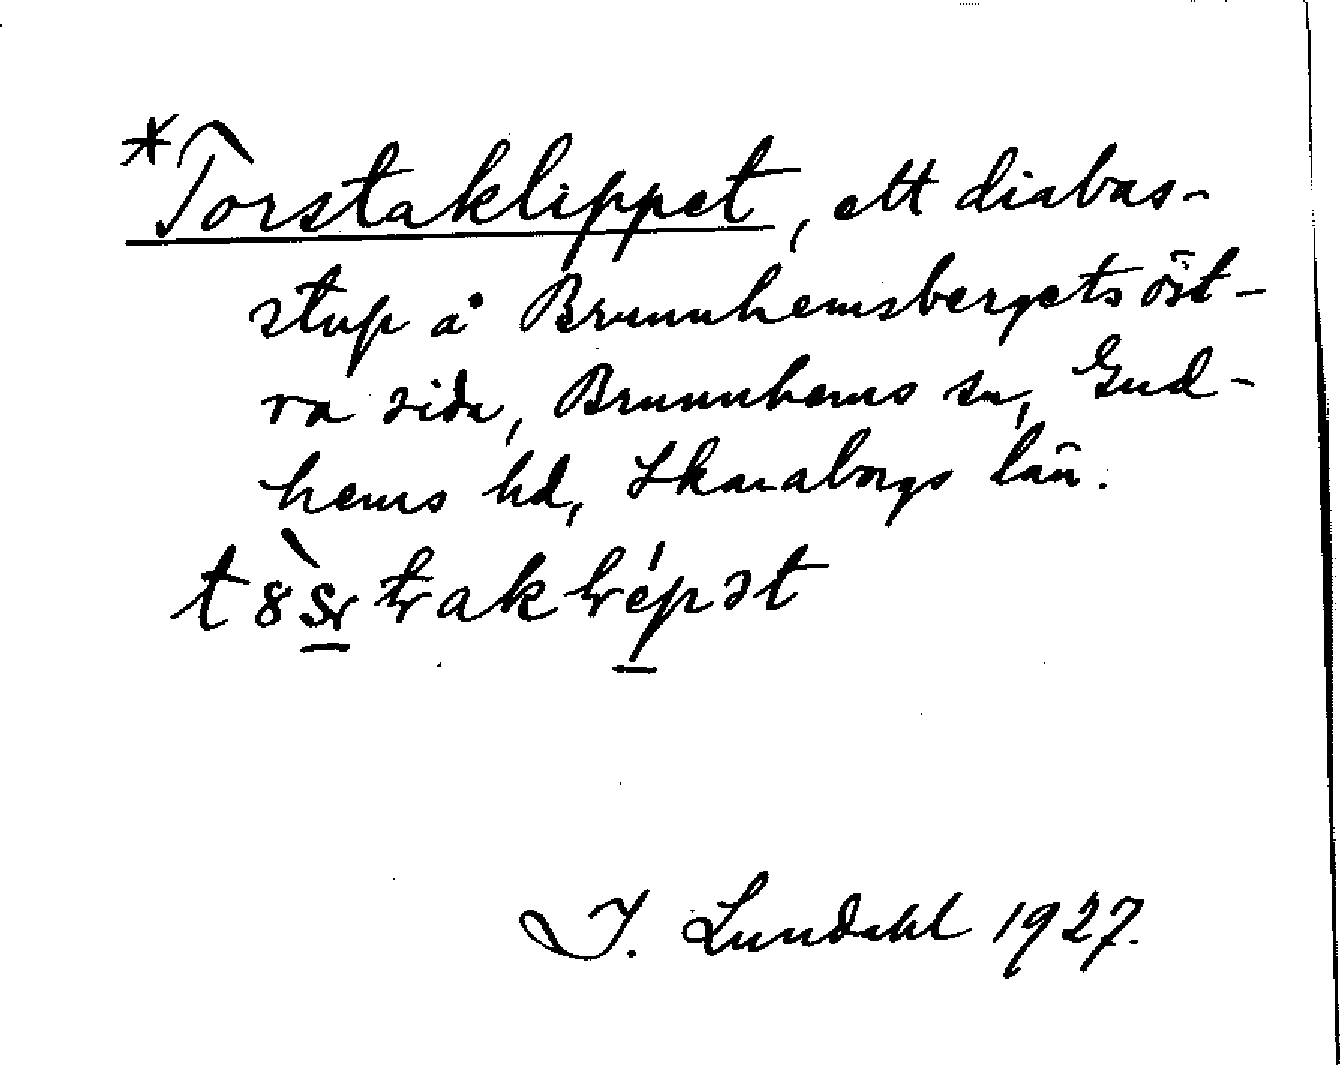 *Torstaklippet, ett diabas-
stup å Brunnhemsbergets öst-
ra sida, Brunnhems sn, Gud-
hems hd, Skaraborgs län.
I. Lundahl 1927.